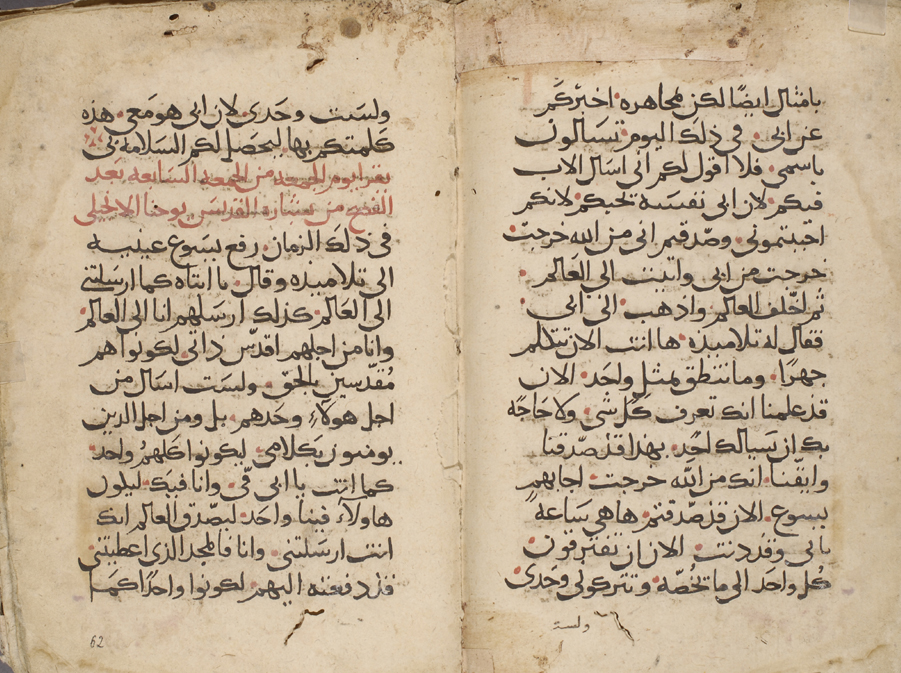 بامثال ايضًا لكن مجاهره اخبركم
عن ابي في ذلك اليوم تسالون
باسمي فلا اقول لكم اني اسال الاب
فيكم لان ابي نفسه تحبكم لانكم
احببتموني وصدقتم اني من الله خرجت
خرجت من ابي واتيت الى العالم
ثم اخلف العالم واذهب الى ابي
فقال له تلاميذه ها انت الان تتكلم
جهرًا وما تنطق بمثل واحد الان
قد علمنا انك تعرف كل شي ولا حاجه
بك ان يسالك احد بهذا قد صدقنا
وايقنا انك من الله خرجت اجابهم
يسوع الان قد صدقتم ها هي ساعه
تاتي وقد دنت الان ان تفترقون
كل واحد الى ما تخصه وتتركوني وحدي
ولست
ولست وحدي لان ابي هو معي هذه
كلمتكم بها ليحصل لكم السلامه بي
يقرا يوم الجمعه من الجمعه السابعه بعد
الفصح من بشارة القديس يوحنا الانجيلي
في ذلك الزمان رفع يسوع عينيه
الى تلاميذه وقال يا ابتاه كما ارسلتني
الى العالم كذلك ارسلهم انا الى العالم
وانا من اجلهم اقدس ذاتي لكونوا هم
مقدسين بالحق ولست اسال من
اجل هولاء وحدهم بل ومن اجل الذين
يومنون بكلامهم ليكونوا كلهم واحد
كما انت يا ابي في وانا فيك ليكون
هاولاء فينا واحد ليصدق العالم انك
انت ارسلتني وانا فالمجد الذي اعطيتني
قد دفعته اليهم لكونوا واحدًا كما
62